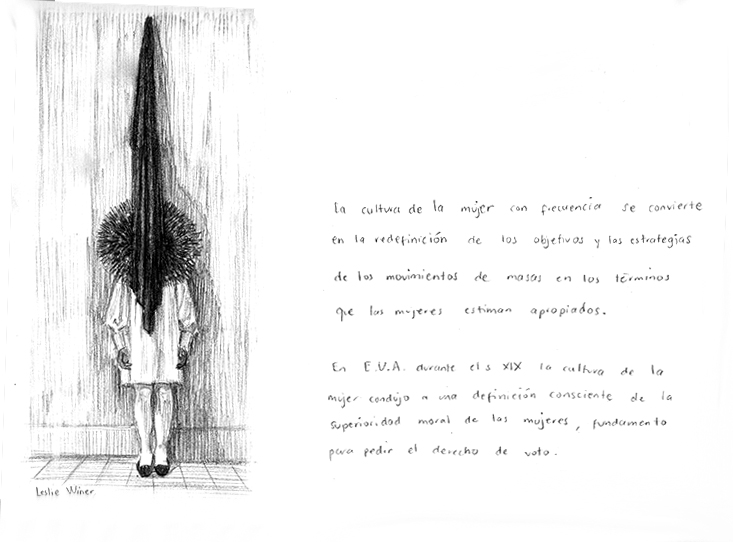 La cultura de la mujer con frecuencia se convierte
en la redefinición de los objetivos y las estrategias
de los movimientos de masas en los términos
que las mujeres estiman apropiados.
En E.U.A. durante el s XIX la cultura de la
mujer condujo a una definición consciente de la
superioridad moral de las mujeres, fundamento
para pedir el derecho de voto.
Leslie Winer